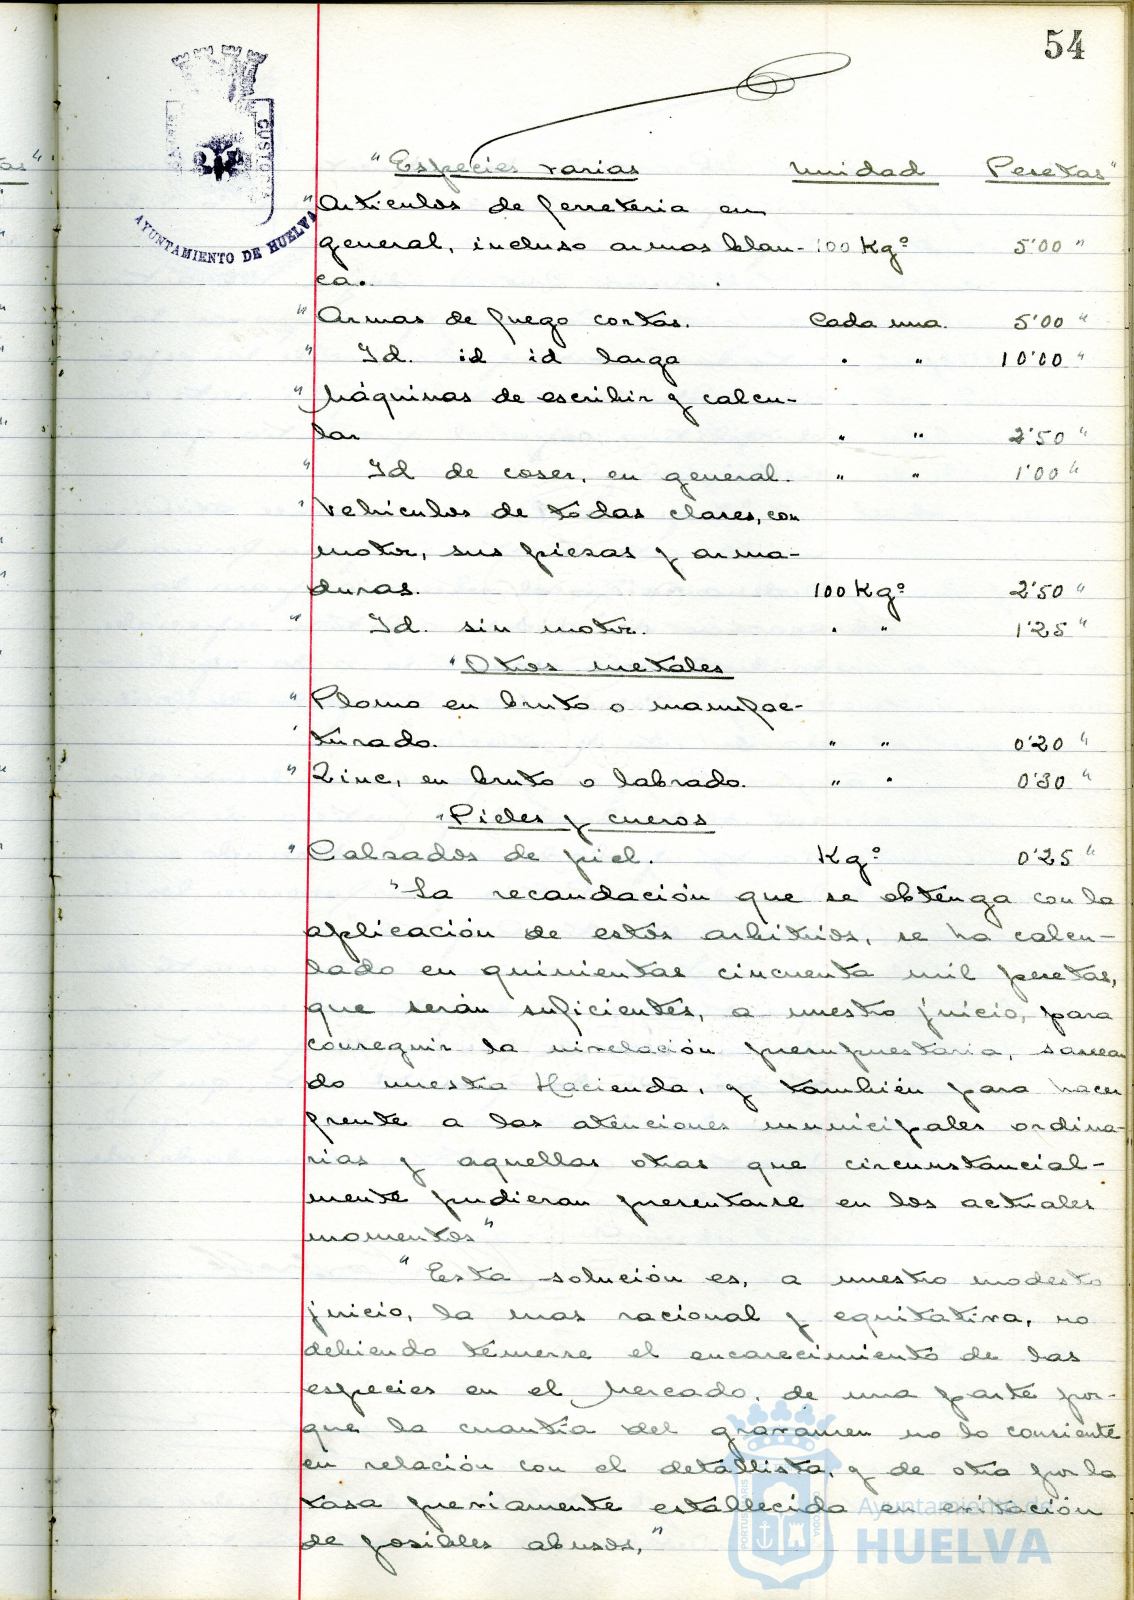 54
AYUNTAMIENTO DE HUELVA
"Especies varias Unidad Pesetas"
"Artículos de ferreteria en
general, incluso armas blan- 100 Kgº 5'00 "
ca.
"Armas de fuego cortas. Cada una. 5'00 "
" Id. id id larga " " 10'00 "
"Máquinas de escribir y calcu-
lar " " 2'50 "
" Id de coser, en general. " " 1'00 "
"Vehículos de todas clases, con
motor, sus piezas y arma-
duras. 100 Kgº 2'50 "
" Id. sin motor. " " 1'25 "
"Otros metales
"Plomo en bruto o manufac-
turado. " " 0'20 "
"Zinc, en bruto o labrado. " " 0'30 "
"Pieles y cueros
"Calzados de piel. Kgº 0'25 "
"La recaudación que se obtenga con la
aplicación de estos arbitrios, se ha calcu-
lado en quinientas cincuenta mil pesetas,
que serán suficientes, a nuestro juicio, para
conseguir la nivelación presupuestaria, sanean
do nuestra Hacienda, y también para hacer
frente a las atenciones municipales ordina-
rias y aquellas otras que circunstancial-
mente pudieran presentarse en los actuales
momentos"
"Esta solución es, a nuestro modesto
juicio, la mas racional y equitativa, no
debiendo temerse el encarecimiento de las
especies en el Mercado, de una parte por-
que la cuantía del gravamen no lo consiente
en relación con el detallista, y de otra por la
tasa previamente establecida en evitación
de posibles abusos."
Ayuntamiento de
HUELVA